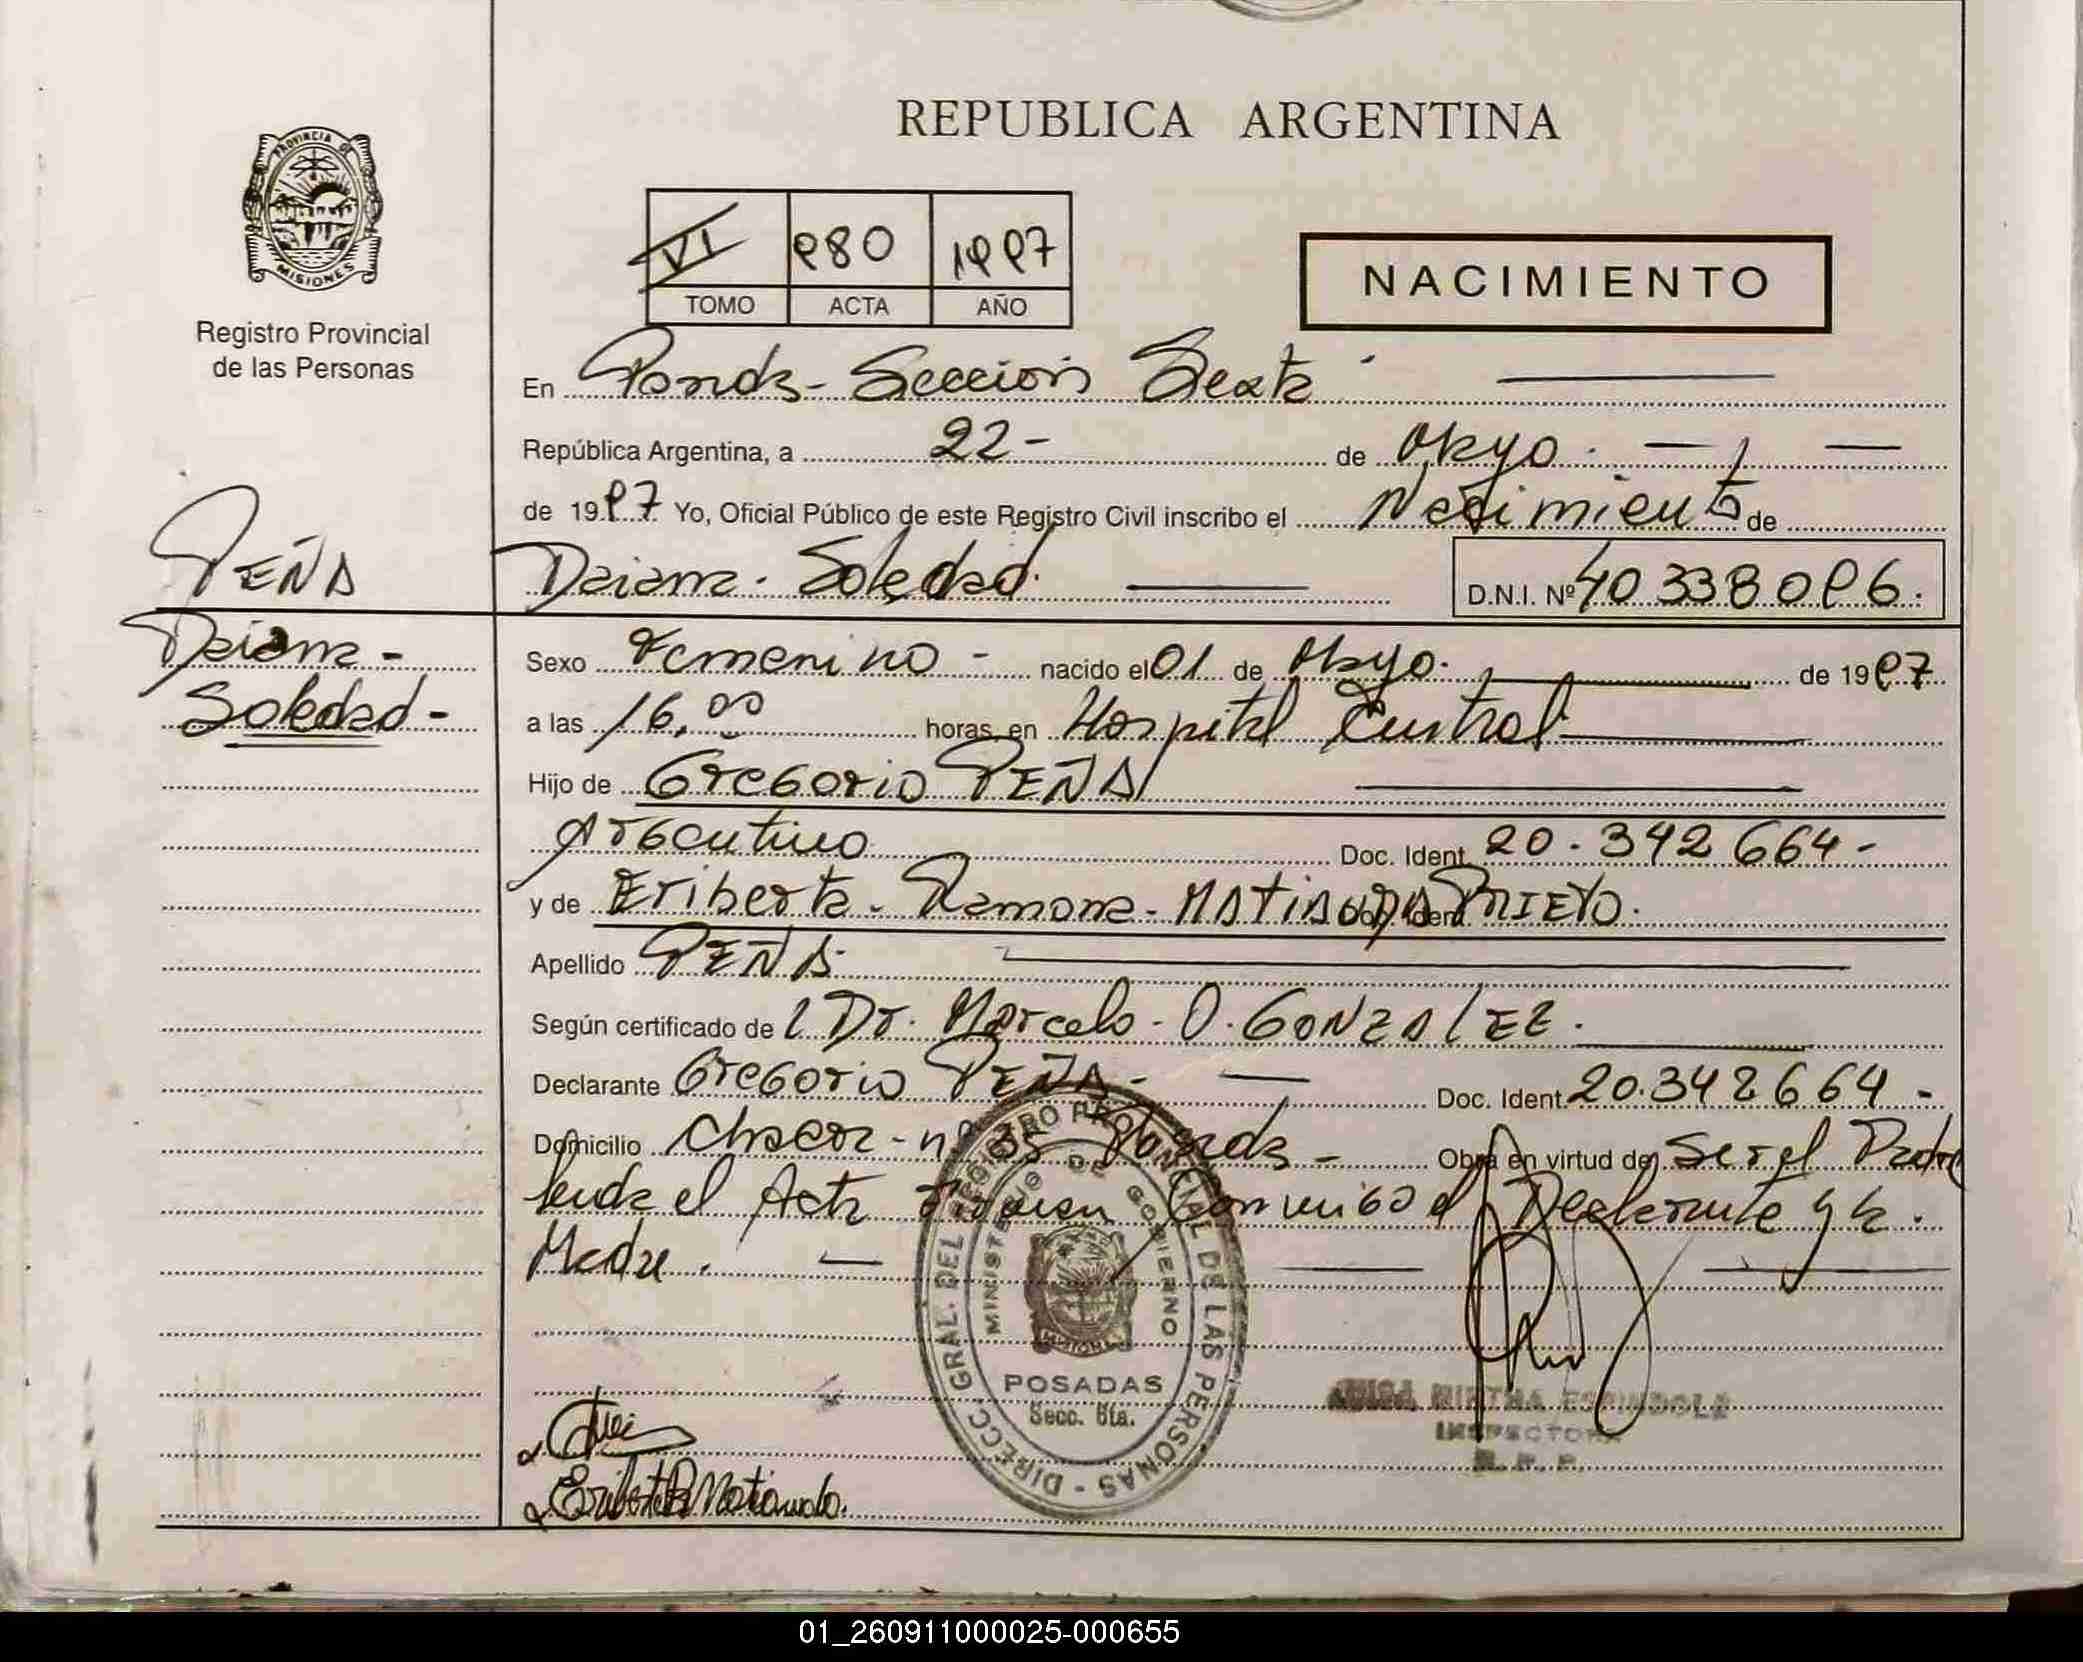 REPUBLICA ARGENTINA
PROVINCIA DE MISIONES
Registro Provincial
de las Personas
VI 980 1997
TOMO ACTA AÑO
NACIMIENTO
En Posadas - Sección Sexta
República Argentina, a 22 - de Mayo.
de 1997 Yo, Oficial Público de este Registro Civil inscribo el Nacimiento de
Daiana. Soledad. D.N.I. Nº 40 338 096.
PEÑA
Daiana -
Soledad -
Sexo Femenino - nacido el 01 de Mayo. de 1997
a las 16,00 horas en Hospital Central
Hijo de Gregorio PEÑA
Argentino Doc. Ident. 20.342 664 -
y de Eriberta - Ramona - MATIAUDA PRIETO.
Apellido PEÑA
Según certificado del Dr. Marcelo - O. GONZALEZ.
Declarante Gregorio PEÑA - Doc. Ident. 20.342664 -
Domicilio Chacra - nº Posadas - Obra en virtud de Ser el Padre
leída el Acta firman Conmigo el Declarante y la.
Madre.
DIRECC. GRAL. DEL REGISTRO PROVINCIAL DE LAS PERSONAS -
MINISTERIO DE GOBIERNO
MISIONES
POSADAS
Secc. 6ta.
MIRTHA ESPINDOLA
INSPECTORA
R. P. P.
Eriberta R Matiauda.
01_260911000025-000655